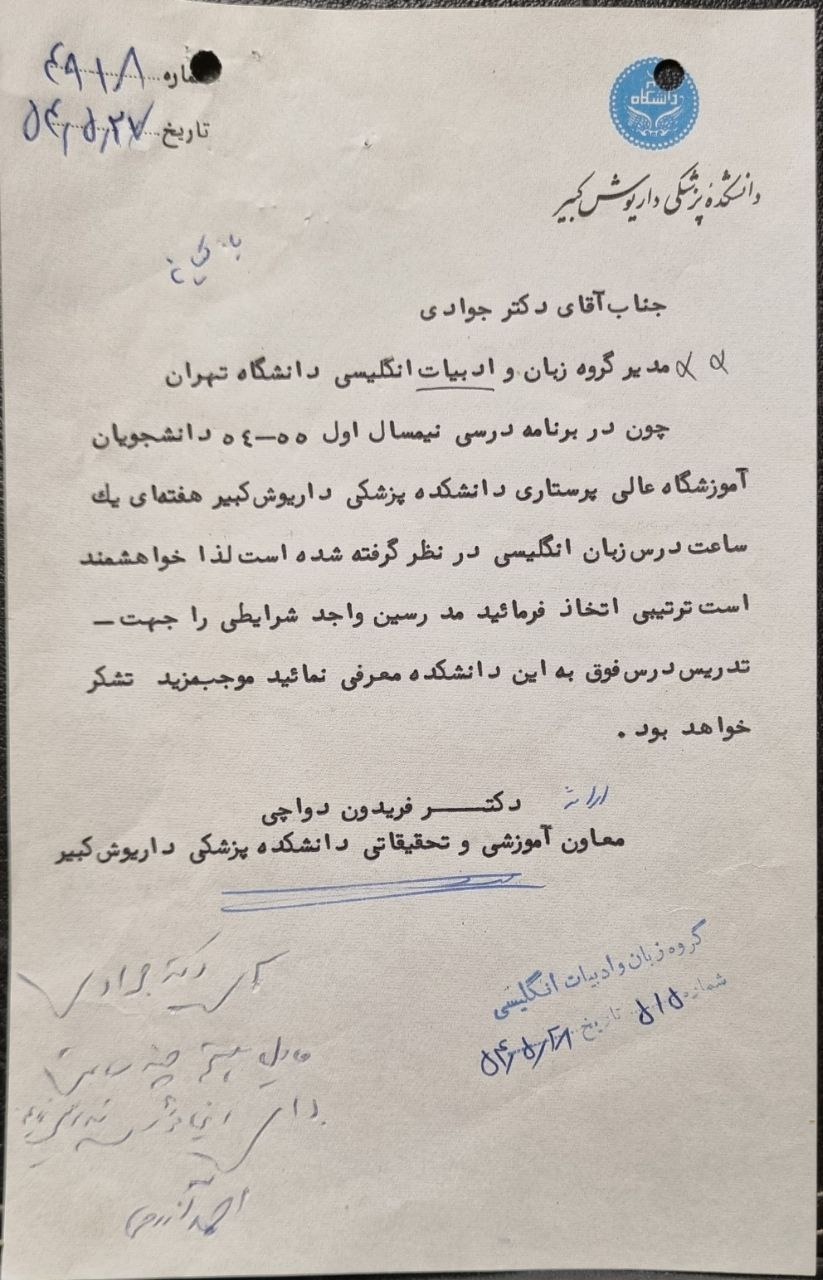 شماره ۴۹۱۸
تاریخ ۵۴٫۵٫۲۷
دانشگاه
دانشکدهٔ پزشکی داریوش کبیر
جناب آقای دکتر جوادی
مدیر گروه زبان و ادبیات انگلیسی دانشگاه تهران
چون در برنامه درسی نیمسال اول ٥٥-٥٤ دانشجویان
آموزشگاه عالی پرستاری دانشکده پزشکی داریوش کبیر هفته‌ای یك
ساعت درس زبان انگلیسی در نظر گرفته شده است لذا خواهشمند
است ترتیبی اتخاذ فرمائید مدرسین واجد شرایطی را جهت –
تدریس درس فوق به این دانشکده معرفی نمائید موجب مزید تشکر
خواهد بود .
دکتر فریدون دواچی
معاون آموزشی و تحقیقاتی دانشکده پزشکی داریوش کبیر
گروه زبان و ادبیات انگلیسی
شماره ۵۱۵ تاریخ ۵۴٫۵٫۲۸
دکتر جوادی